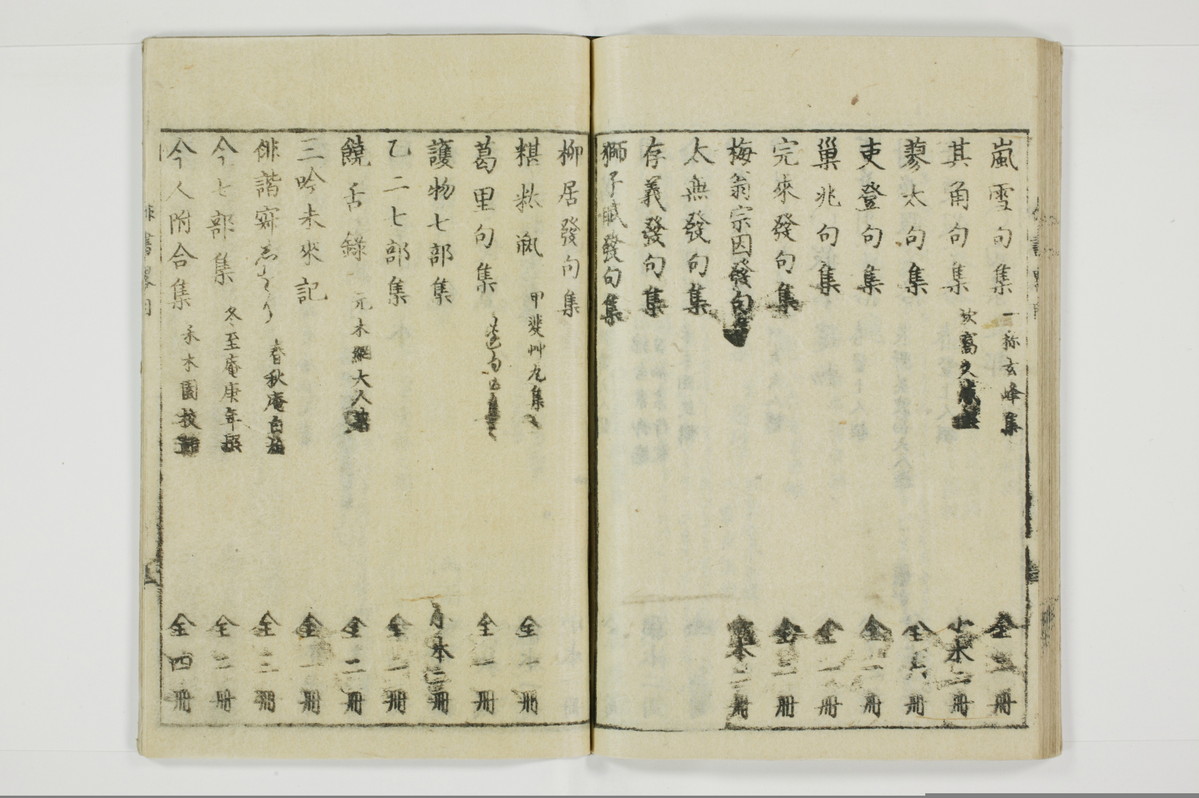 嵐雪句集 一称玄峰集 全二冊
其角句集 小本二冊
蓼太句集 全 冊
吏登句集 全一冊
巢兆句集 全一冊
完來發句集 全二冊
梅翁宗因發句集 本二冊
太無發句集
存義發句集
獅子眠發句集
柳居發句集
糂粏瓶 甲斐艸丸集 全一冊
葛里句集 全一冊
護物七部集 本二冊
乙二七部集 全二冊
饒舌錄 元木網大人著 全二冊
三吟未來記 全一冊
俳諧 春秋庵白 全三冊
今七部集 冬至庵庚年撰 全二冊
今人附合集 禾木園校 全四冊